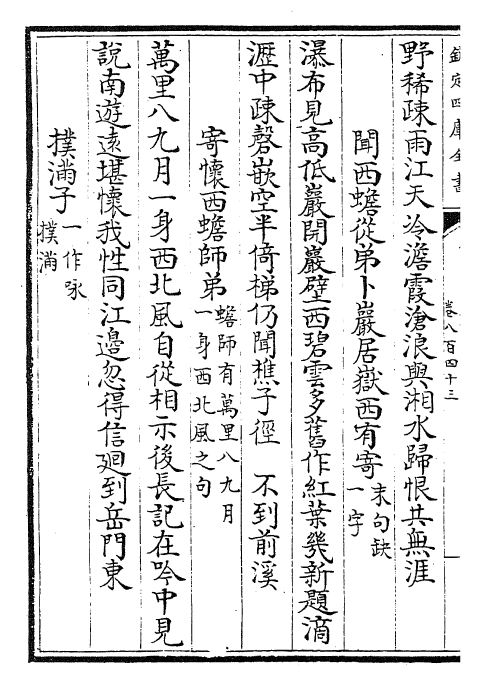 欽定四庫全書
卷八百四十三
野稀疎雨江天冷澹霞滄浪興湘水歸恨共無涯
聞西蟾從弟卜巖居嶽西有寄末句缺一字
瀑布見高低巖開巖壁西碧雲多舊作紅葉幾新題滴
瀝中疎磬嵌空半倚梯仍聞樵子徑 不到前溪
寄懷西蟾師弟蟾師有萬里八九月一身西北風之句
萬里八九月一身西北風自從相示後長記在吟中見
說南遊遠堪懷我性同江邉忽得信廻到岳門東
撲滿子一作咏撲滿